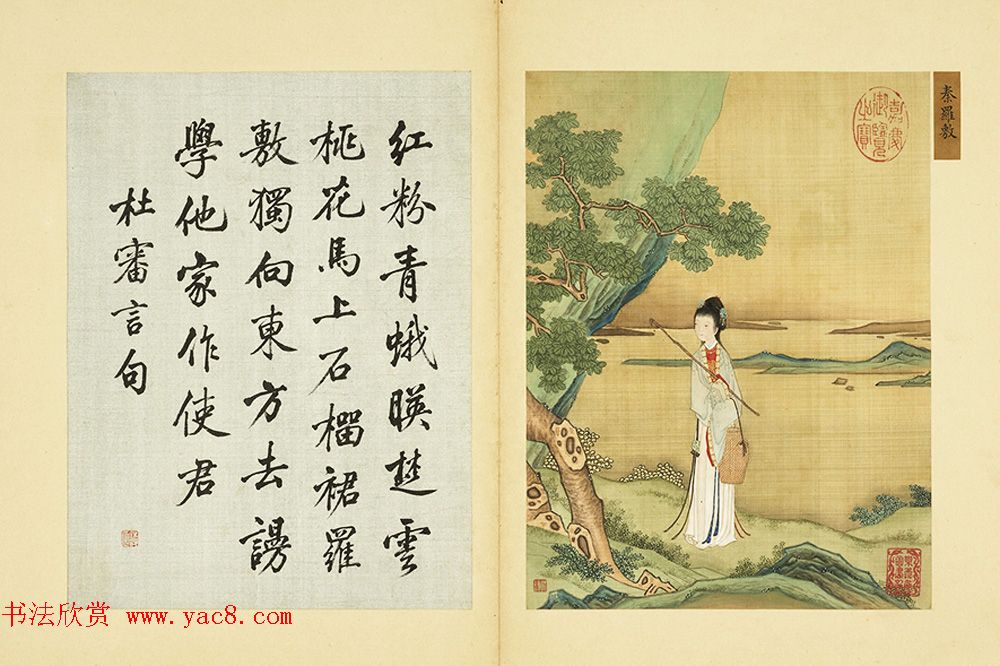 秦羅敷
嘉慶
御覽
之寶
紅粉青蛾暎楚雲
桃花馬上石榴裙羅
敷獨向東方去謾
學他家作使君
杜審言句
书法欣赏 www.yac8.com